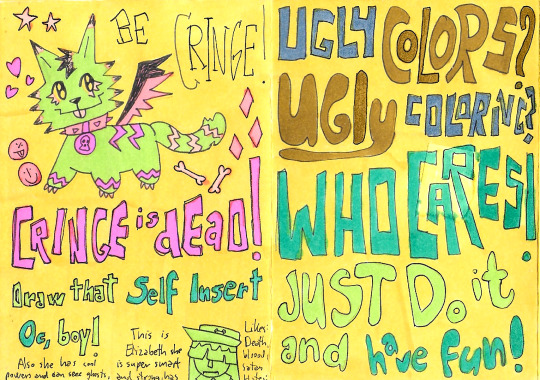 BE
CRINGE!
CRINGE is dEAD!
Draw that Self Insert
Oc, boy!
Also she has cool
powers and can see ghosts,
This is
Elizabeth she
is super smart
and strong, has
Likes:
Death,
blood,
satan
UGLY COLORS?
UGLY COLORING?
WHO CARES!
JUST Do it
and have fun!